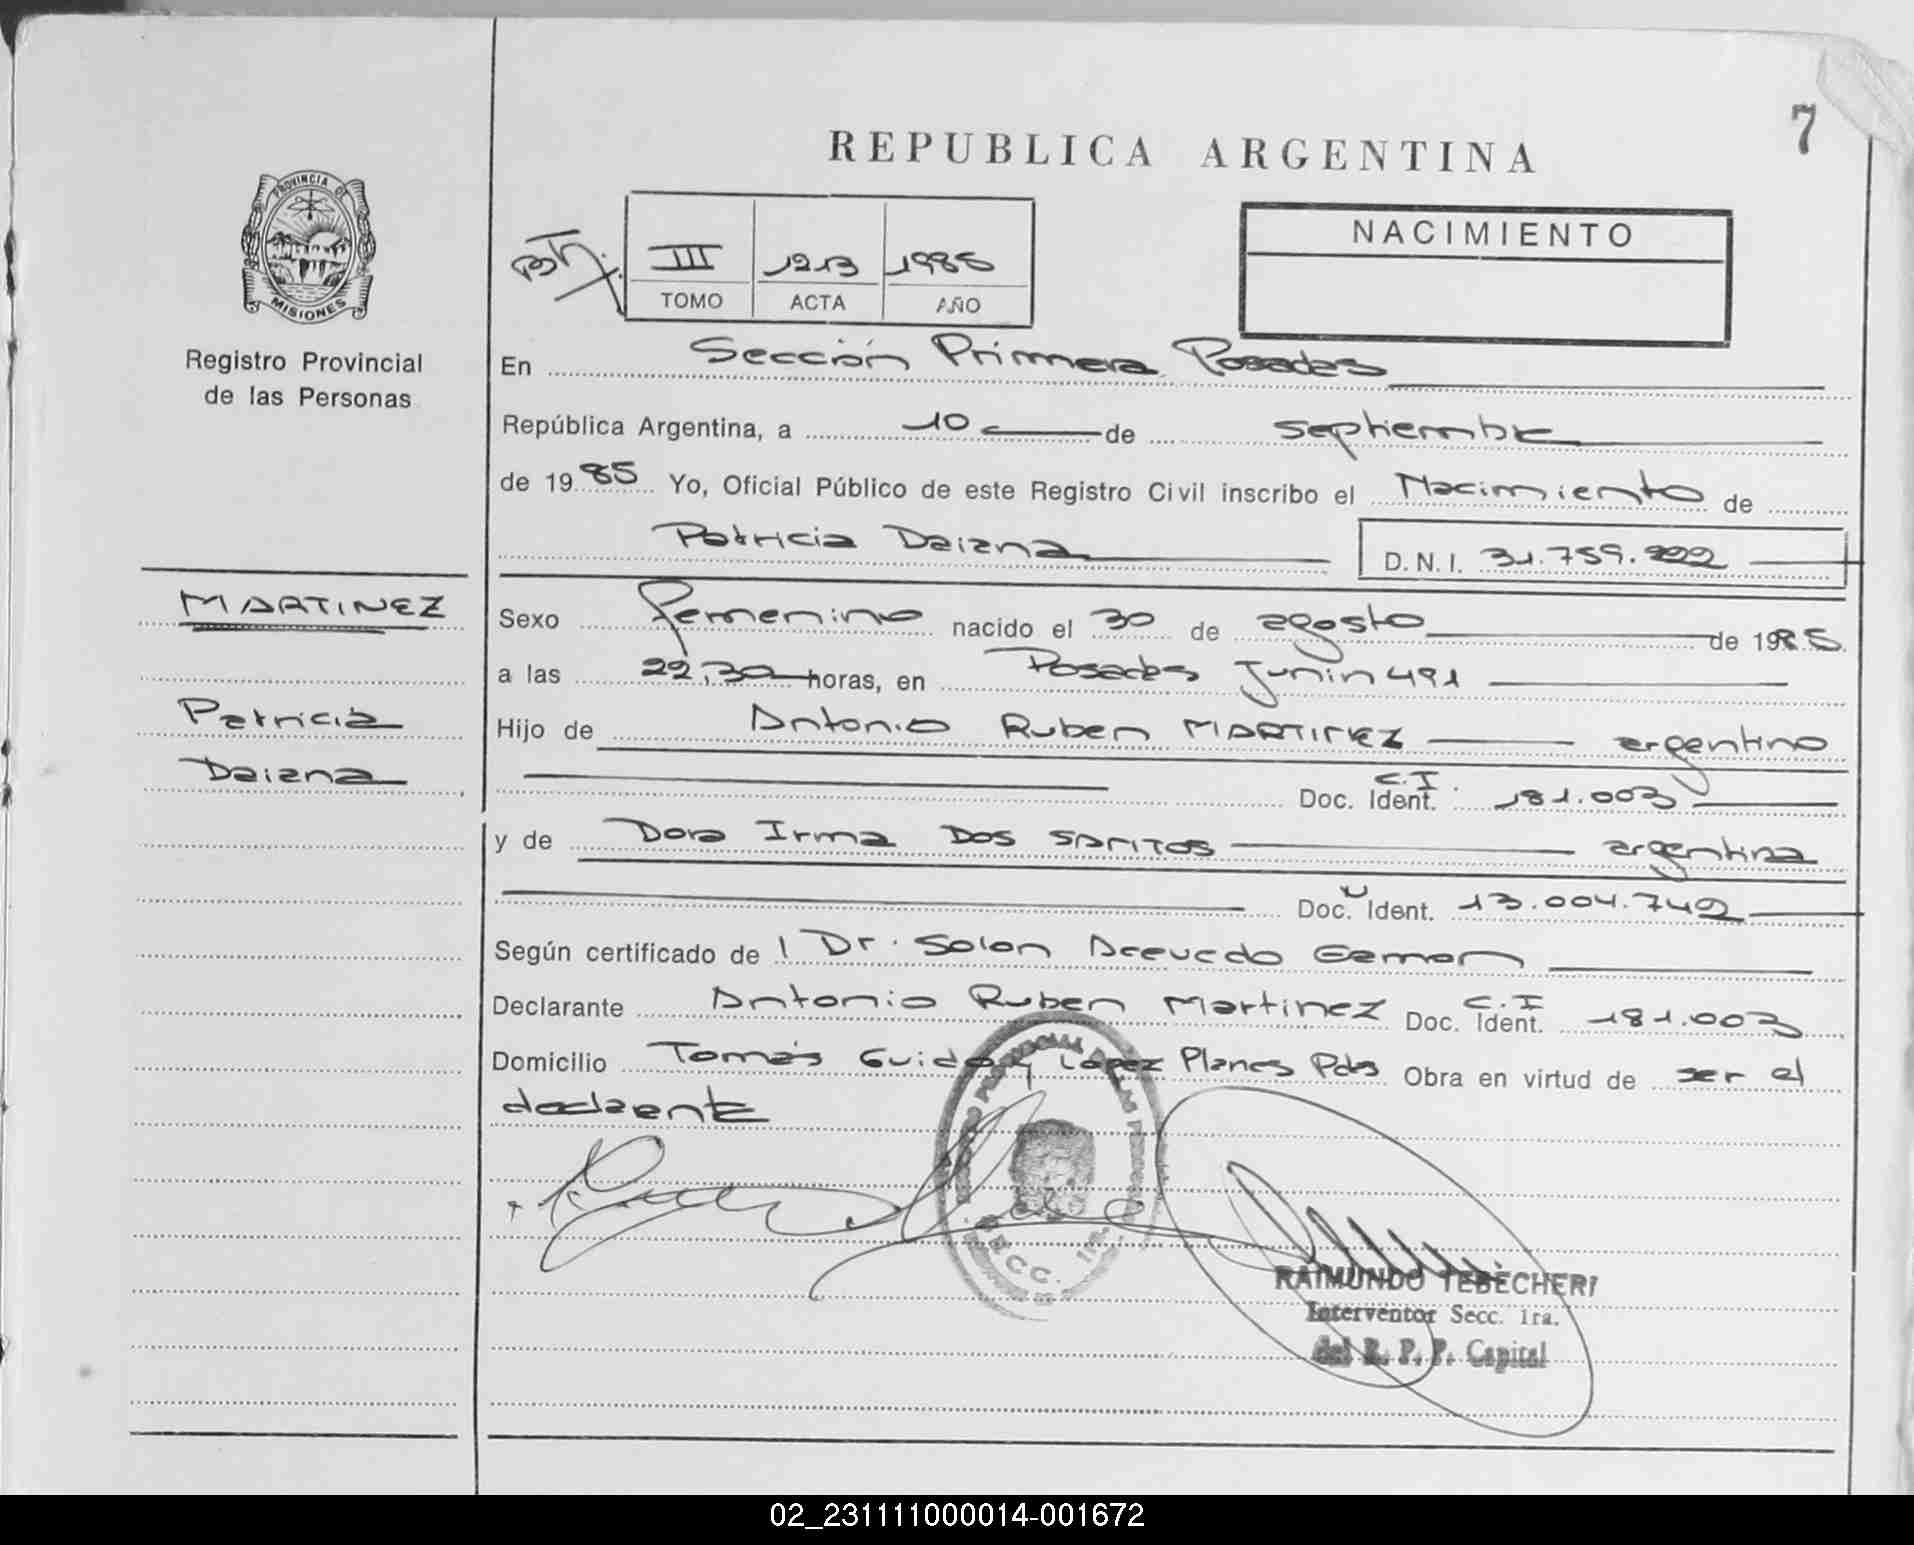 7
REPUBLICA ARGENTINA
PROVINCIA DE
MISIONES
Registro Provincial
de las Personas
III 1213 1985
TOMO ACTA AÑO
NACIMIENTO
En Sección Primera Posadas
República Argentina, a 10 de septiembre
de 1985 Yo, Oficial Público de este Registro Civil inscribo el Nacimiento de
Patricia Daiana D.N.I. 31.759.222
MARTINEZ
Patricia
Daiana
Sexo femenino nacido el 30 de agosto de 1985.
a las 22,30 horas, en Posadas Junin 491
Hijo de Antonio Ruben MARTINEZ argentino
Doc. Ident. C.I. 181.003
y de Dora Irma DOS SANTOS argentina
Doc. Ident. 13.004.742
Según certificado de l Dr. Solon Acevedo
Declarante Antonio Ruben Martinez Doc. Ident. C.I 181.003
Domicilio Tomás Guido y López Planes Pdas Obra en virtud de ser el
declarente
SECC. 1ra.
RAIMUNDO TEBECHERI
Interventor Secc. 1ra.
del R. P. P. Capital
02_231111000014-001672